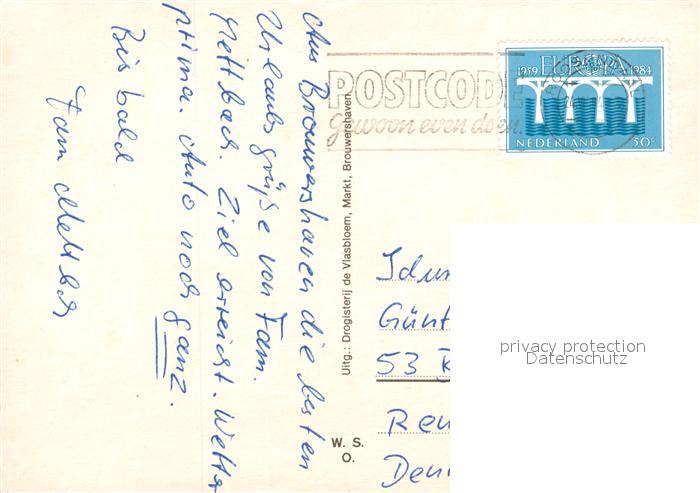 Aus Brouwershaven die besten
Urlaubsgrüße von Fam.
Mettbach. Ziel erreicht. Wetter
prima. Auto noch ganz.
Bis bald
Fam Mettbach
POSTCODE
Gewoon even doen.
1959 EUROPA 1984
NEDERLAND 50c
Uitg.: Drogisterij de Vlasbloem, Markt, Brouwershaven
W. S.
O.
Günt
53
privacy protection
Datenschutz